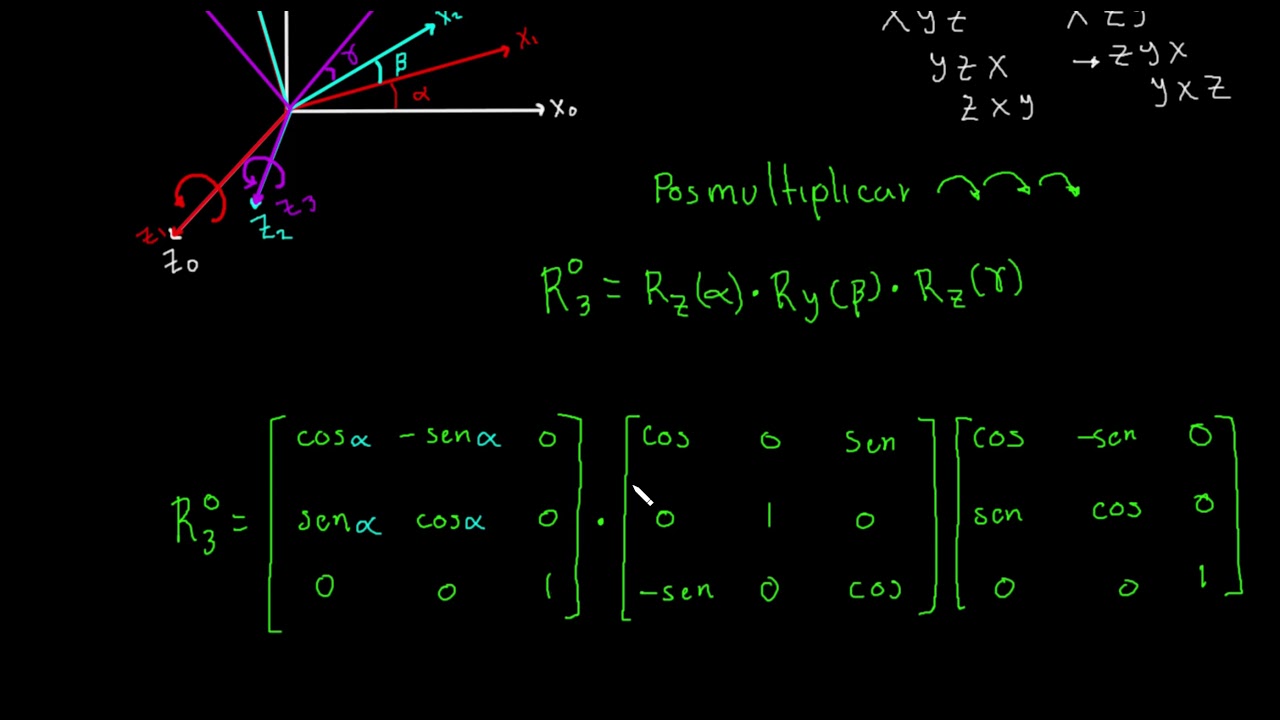 x₂
x₁
γ
β
α
x₀
z₃
z₂
z₁
z₀
x y z
y z x
z x y
x z y
→ z y x
y x z
Posmultiplicar
R₃⁰ = Rz(α) · Ry(β) · Rz(γ)
R₃⁰ =
cosα -senα 0
senα cosα 0
0 0 1
·
cos 0 sen
0 1 0
-sen 0 cos
cos -sen 0
sen cos 0
0 0 1